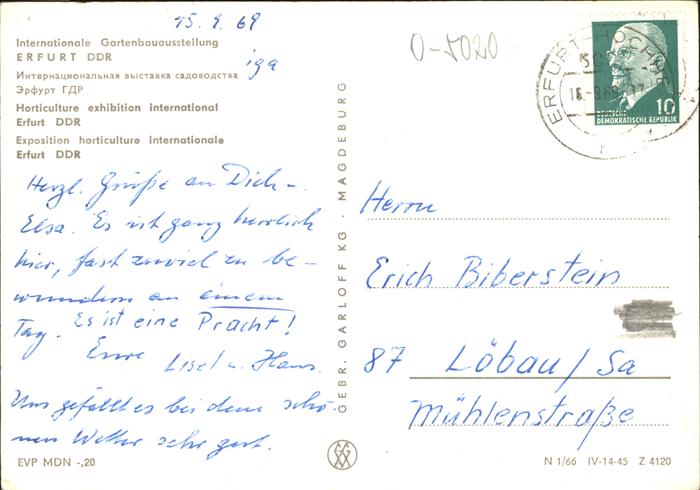 15.9.69
Internationale Gartenbauausstellung
ERFURT DDR
iga
Интернациональная выставка садоводства
Эрфурт ГДР
Horticulture exhibition international
Erfurt DDR
Exposition horticulture internationale
Erfurt DDR
Herzl. Grüße an Dich u.
Elsa. Es ist ganz herrlich
hier, fast zuviel zu be-
wundern an einem
Tag. Es ist eine Pracht!
Eure Lisel u. Hans.
Uns gefällt es bei dem schö-
nen Wetter sehr gut.
EVP MDN -,20
GEBR. GARLOFF KG · MAGDEBURG
O-5020
ERFURT-HOCHHEIM
10
DEUTSCHE
DEMOKRATISCHE REPUBLIK
Herrn
Erich Biberstein
87 Löbau/Sa
Mühlenstraße
N 1/66 IV-14-45 Z 4120